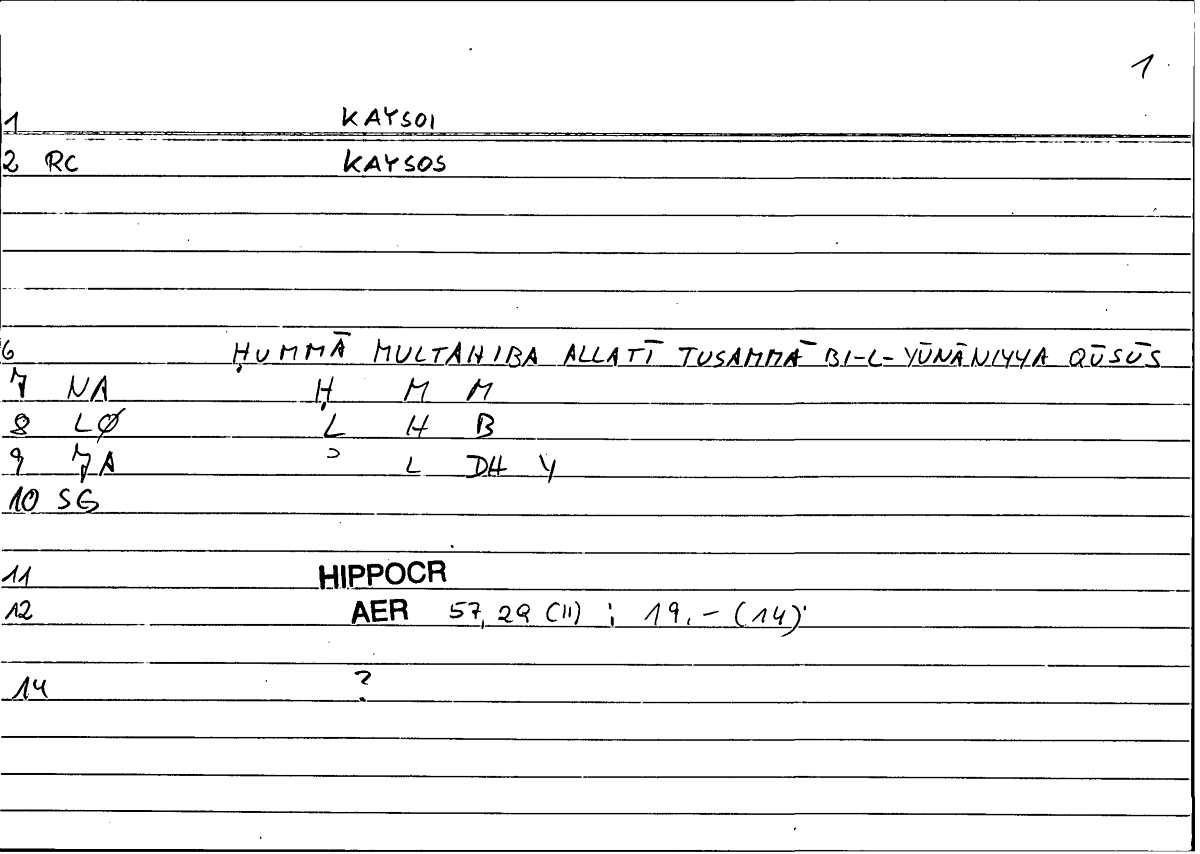 1
1 KAYSOI
2 RC KAYSOS
6 ḤUMMĀ MULTAHIBA ALLATĪ TUSAMMĀ BI-L-YŪNĀNIYYA QŪSŪS
7 NA Ḥ M M
8 LØ L H B
9 7A ᵓ L DH Y
10 SG
11 HIPPOCR
12 AER 57,29 (11) ; 19.- (14)
14 ?